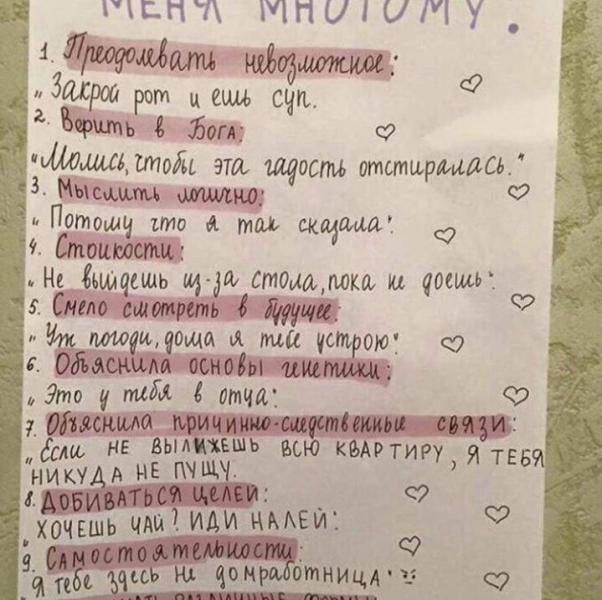 МЕНЯ МНОГОМУ.
1. Преодолевать невозможное:
„Закрой рот и ешь суп.
2. Верить в Бога:
„Молись, чтобы эта гадость отстиралась."
3. Мыслить логично:
„Потому что я так сказала"
4. Стойкости:
„Не выйдешь из-за стола, пока не доешь"
5. Смело смотреть в будущее:
„Уж погоди, дома я тебе устрою"
6. Объяснила основы генетики:
„Это у тебя в отца"
7. Объяснила причинно-следственные связи:
„Если не вылижешь всю квартиру, я тебя
никуда не пущу.
8. Добиваться целей:
„Хочешь чай? Иди налей"
9. Самостоятельности:
Я тебе здесь не домработница"